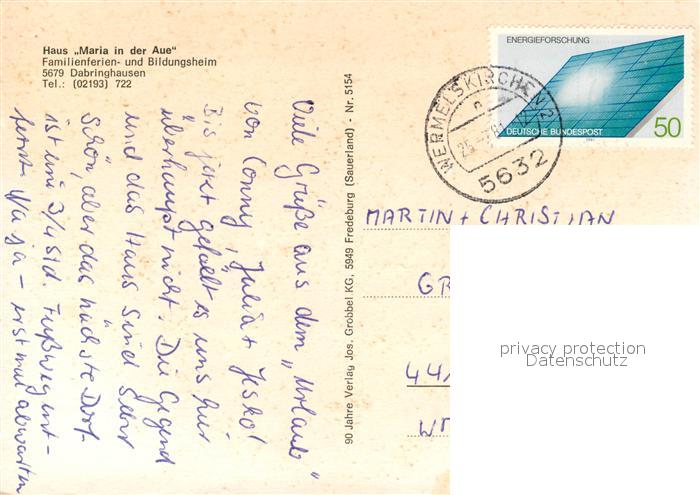 Haus „Maria in der Aue"
Familienferien- und Bildungsheim
5679 Dabringhausen
Tel.: (02193) 722
Viele Grüße aus dem „Urlaub"
von Conny, Julia + Heko!
Bis jetzt gefällt es uns hier
überhaupt nicht. Die Gegend
und das Haus sind sehr
schön, aber das nächste Dorf
ist uns 3/4 Std. Fußweg ent-
fernt. Na ja – erst mal abwarten
90 Jahre Verlag Jos. Grobbel KG, 5949 Fredeburg (Sauerland) - Nr. 5154
ENERGIEFORSCHUNG
DEUTSCHE BUNDESPOST
50
WERMELSKIRCHEN 2
n
5632
MARTIN + CHRISTIAN
GR
44
privacy protection
Datenschutz